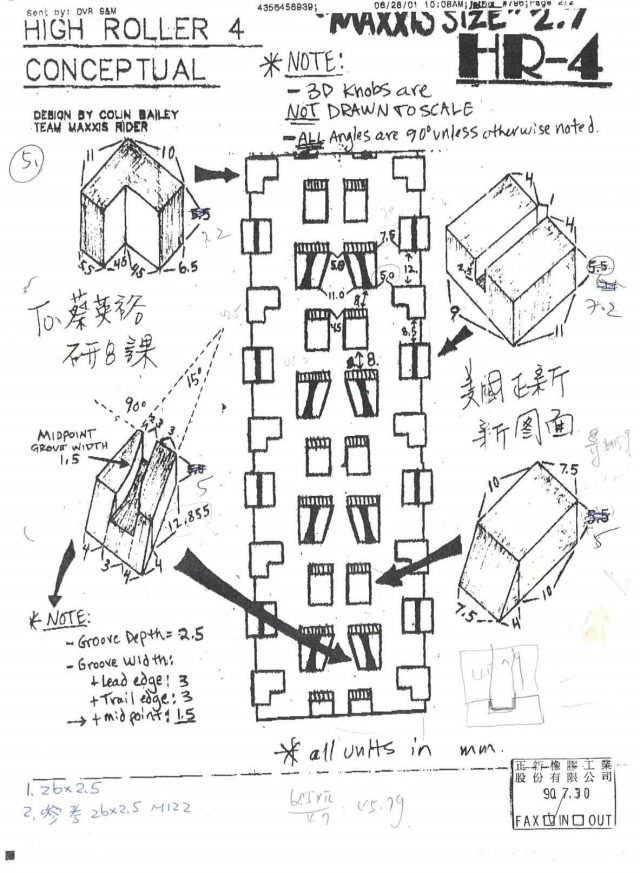 Sent by: DVR S&M
4356456939;
06/28/01 10:08AM;
Page 2/2
HIGH ROLLER 4
CONCEPTUAL
"MAXXIS SIZE" 2.7
HR-4
* NOTE:
- 3D Knobs are
NOT DRAWN TO SCALE
- ALL Angles are 90° unless otherwise noted.
DESIGN BY COLIN BAILEY
TEAM MAXXIS RIDER
5.
11
10
5.5
7.2
5.5
45
45
6.5
4
1
4
5.5
7.2
2.5
9
11
7.5
5.0
5.0
12
11.0
8
45
8.5
8.
To: 蔡英裕
研8課
90°
15°
3
3
3
MIDPOINT
GROVE WIDTH
1.5
5.5
5
12.855
4
3
4
4
美國正新
新图面
7.5
10
5.5
5
10
7.5
4
* NOTE:
- Groove Depth = 2.5
- Groove Width:
+ Lead edge: 3
+ Trail edge: 3
→ + mid point: 1.5
* all units in mm.
1. 26x2.5
2. 參考 26x2.5 M122
45.79
正新橡膠工業
股份有限公司
90.7.30
FAX IN OUT